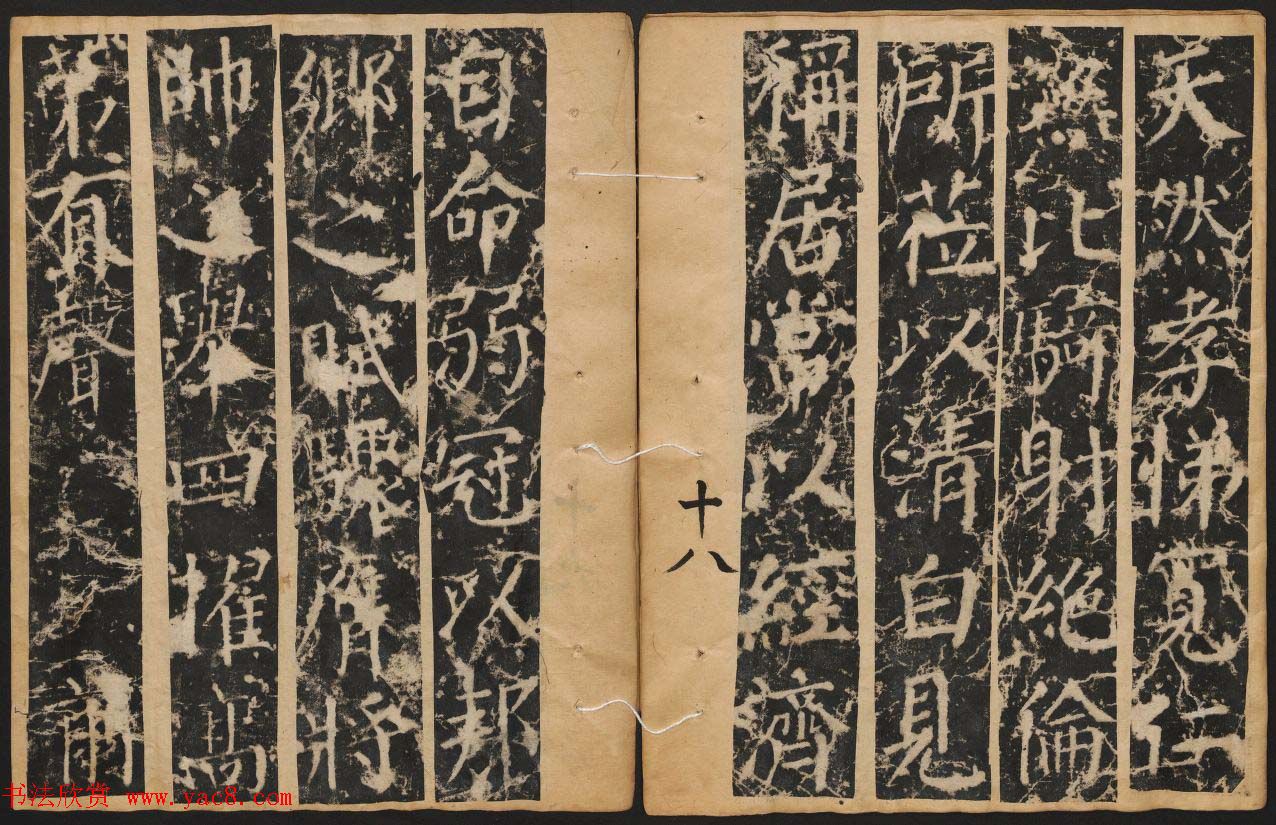 天然孝悌寬仁
無比騎射絶倫
所莅以清白見
稱居常以經濟
十八
自命弱冠以邦
鄉之賦驟膺將
帥之舉四擢高
苐有聲前
书法欣赏 www.yac8.com